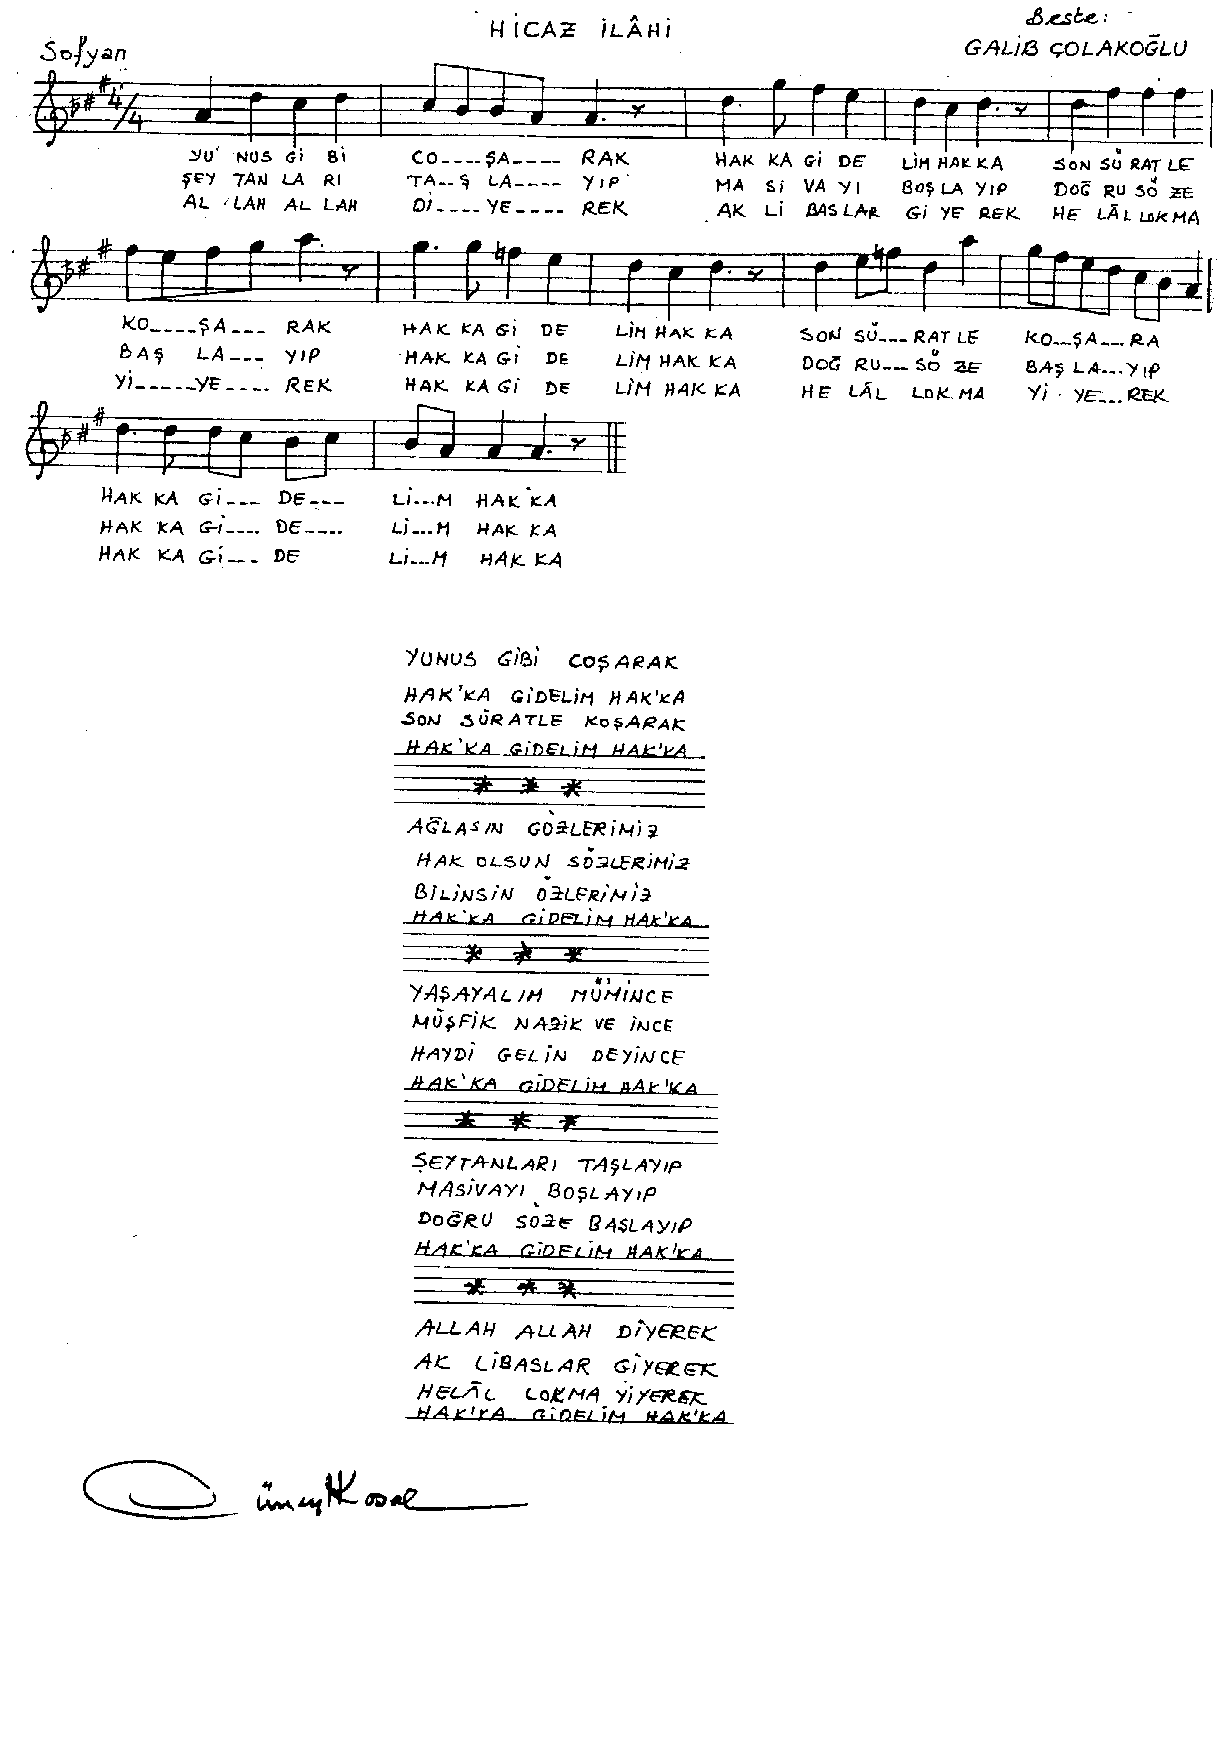 HİCAZ İLÂHİ
Beste:
GALİB ÇOLAKOĞLU
Sofyan
4/4
YU NUS Gİ Bİ CO----ŞA---- RAK HAK KA Gİ DE LİM HAK KA SON SÜ RAT LE
ŞEY TAN LA RI TA--Ş LA---- YIP MA Sİ VA YI BOŞ LA YIP DOĞ RU SÖ ZE
AL LAH AL LAH Dİ----YE---- REK AK Lİ BAS LAR Gİ YE REK HE LÂL LOK MA
KO----ŞA--- RAK HAK KA Gİ DE LİM HAK KA SON SÜ---RAT LE KO--ŞA--RA
BAŞ LA--- YIP HAK KA Gİ DE LİM HAK KA DOĞ RU---SÖ ZE BAŞ LA---YIP
Yİ-----YE---- REK HAK KA Gİ DE LİM HAK KA HE LÂL LOK MA Yİ YE---REK
HAK KA Gİ--- DE--- Lİ---M HAK'KA
HAK KA Gİ---- DE---- Lİ---M HAK KA
HAK KA Gİ--- DE Lİ---M HAK KA
YUNUS GİBİ COŞARAK
HAK'KA GİDELİM HAK'KA
SON SÜRATLE KOŞARAK
HAK'KA GİDELİM HAK'KA
* * *
AĞLASIN GÖZLERİMİZ
HAK OLSUN SÖZLERİMİZ
BİLİNSİN ÖZLERİMİZ
HAK'KA GİDELİM HAK'KA
* * *
YAŞAYALIM MÜ'MİNCE
MÜŞFİK NAZİK VE İNCE
HAYDİ GELİN DEYİNCE
HAK'KA GİDELİM HAK'KA
* * *
ŞEYTANLARI TAŞLAYIP
MASİVAYI BOŞLAYIP
DOĞRU SÖZE BAŞLAYIP
HAK'KA GİDELİM HAK'KA
* * *
ALLAH ALLAH DİYEREK
AK LİBASLAR GİYEREK
HELÂL LOKMA YİYEREK
HAK'KA GİDELİM HAK'KA
Cüneyt Kosal